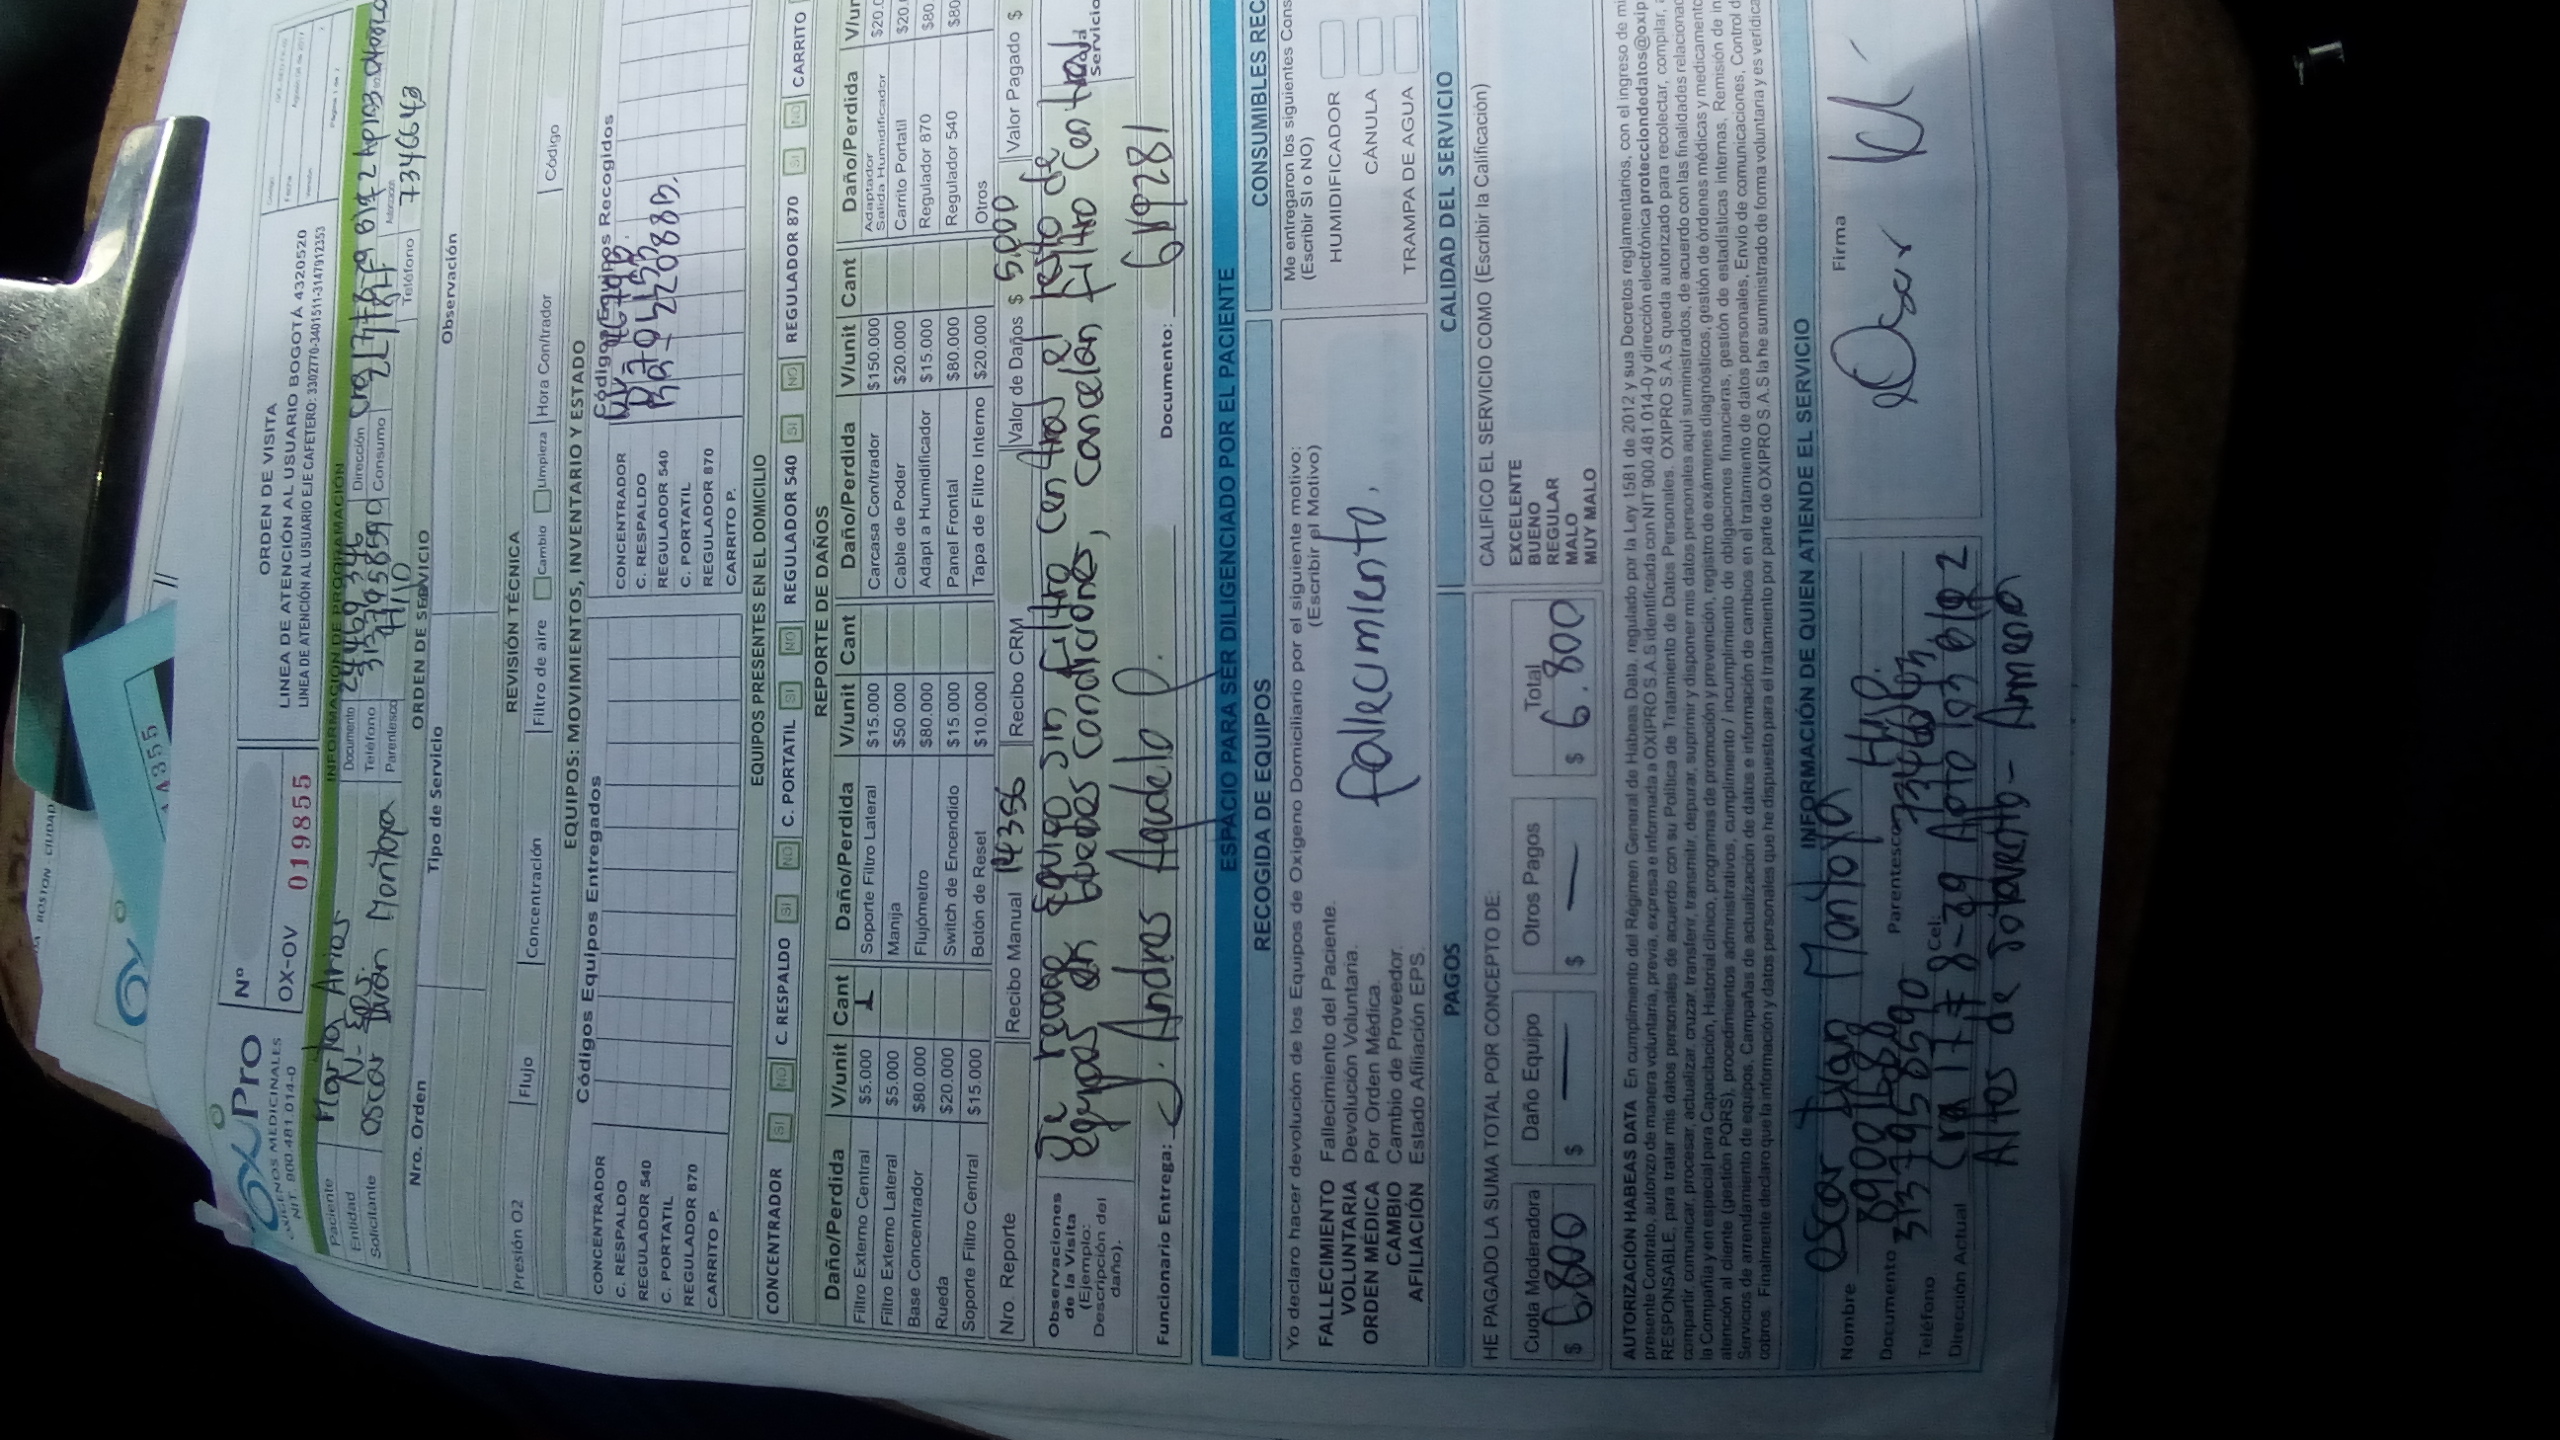 OxyPro
OXIGENOS MEDICINALES
NIT. 900.481.014-0
Nº
OX-OV 019855
ORDEN DE VISITA
LINEA DE ATENCIÓN AL USUARIO BOGOTÁ 4320520
LINEA DE ATENCIÓN AL USUARIO EJE CAFETERO: 3302770-3401511-3147912353
INFORMACIÓN DE PROGRAMACIÓN
Paciente Marta Arias Documento Dirección
Entidad N- EPS. Teléfono 3137958590 Consumo Teléfono
Solicitante Oscar Ivan Montoya Parentesco HIJO 7346643
ORDEN DE SERVICIO
Nro. Orden Tipo de Servicio Observación
REVISIÓN TÉCNICA
Presión O2 Flujo Concentración Filtro de aire Cambio Limpieza Hora Con/trador Código
EQUIPOS: MOVIMIENTOS, INVENTARIO Y ESTADO
Códigos Equipos Entregados Códigos Equipos Recogidos
CONCENTRADOR CONCENTRADOR
C. RESPALDO C. RESPALDO
REGULADOR 540 REGULADOR 540
C. PORTATIL C. PORTATIL
REGULADOR 870 REGULADOR 870
CARRITO P. CARRITO P.
EQUIPOS PRESENTES EN EL DOMICILIO
CONCENTRADOR SI NO C. RESPALDO SI NO C. PORTATIL SI NO REGULADOR 540 SI NO REGULADOR 870 SI NO CARRITO
REPORTE DE DAÑOS
Daño/Perdida V/unit Cant Daño/Perdida V/unit Cant Daño/Perdida V/unit Cant Daño/Perdida V/un
Filtro Externo Central $5.000 1 Soporte Filtro Lateral $15.000 Carcasa Con/trador $150.000 Adaptador Salida Humidificador $20.0
Filtro Externo Lateral $5.000 Manija $50.000 Cable de Poder $20.000 Carrito Portatil $20.
Base Concentrador $80.000 Flujómetro $80.000 Adapt a Humidificador $15.000 Regulador 870 $80.
Rueda $20.000 Switch de Encendido $15.000 Panel Frontal $80.000 Regulador 540 $80
Soporte Filtro Central $15.000 Botón de Reset $10.000 Tapa de Filtro Interno $20.000 Otros
Nro. Reporte Recibo Manual 14356 Recibo CRM Valor de Daños $ 5.000 Valor Pagado $
Observaciones de la Visita (Ejemplo: Descripción del daño).
Se recoge equipo sin filtro central el resto de
equipos en buenas condiciones, cancelan filtro central
Servicio
Funcionario Entrega: J. Andres Agudelo O. Documento: 6119281
ESPACIO PARA SER DILIGENCIADO POR EL PACIENTE
RECOGIDA DE EQUIPOS CONSUMIBLES REC
Yo declaro hacer devolución de los Equipos de Oxígeno Domiciliario por el siguiente motivo:
(Escribir el Motivo)
FALLECIMIENTO Fallecimiento del Paciente.
VOLUNTARIA Devolución Voluntaria.
ORDEN MÉDICA Por Orden Médica.
CAMBIO Cambio de Proveedor.
AFILIACIÓN Estado Afiliación EPS.
fallecimiento.
Me entregaron los siguientes Cons
(Escribir SI o NO)
HUMIDIFICADOR
CÁNULA
TRAMPA DE AGUA
PAGOS CALIDAD DEL SERVICIO
HE PAGADO LA SUMA TOTAL POR CONCEPTO DE:
Cuota Moderadora Daño Equipo Otros Pagos Total
$ 6.800 $ — $ — $ 6.800
CALIFICO EL SERVICIO COMO (Escribir la Calificación)
EXCELENTE
BUENO
REGULAR
MALO
MUY MALO
AUTORIZACIÓN HABEAS DATA En cumplimiento del Régimen General de Habeas Data, regulado por la Ley 1581 de 2012 y sus Decretos reglamentarios, con el ingreso de mi
presente Contrato, autorizo de manera voluntaria, previa, expresa e informada a OXIPRO S.A.S identificada con NIT 900.481.014-0 y dirección electrónica protecciondedatos@oxip
RESPONSABLE, para tratar mis datos personales de acuerdo con su Política de Tratamiento de Datos Personales. OXIPRO S.A.S queda autorizado para recolectar, compilar,
compartir, comunicar, procesar, actualizar, cruzar, transferir, transmitir, depurar, suprimir y disponer mis datos personales aquí suministrados, de acuerdo con las finalidades relacionad
la Compañía y en especial para Capacitación, Historial clínico, programas de promoción y prevención, registro de exámenes diagnósticos, gestión de órdenes médicas y medicamento
atención al cliente (gestión PQRS), procedimientos administrativos, cumplimiento / incumplimiento de obligaciones financieras, gestión de estadísticas internas, Remisión de in
Servicios de arrendamiento de equipos, Campañas de actualización de datos e información de cambios en el tratamiento de datos personales, Envío de comunicaciones, Control d
cobros. Finalmente declaro que la información y datos personales que he dispuesto para el tratamiento por parte de OXIPRO S.A.S la he suministrado de forma voluntaria y es verídica
INFORMACIÓN DE QUIEN ATIENDE EL SERVICIO
Nombre Oscar Ivan Montoya
Documento 89001588 Parentesco HIJO.
Teléfono 3137958590 Cel:
Dirección Actual Cra 17 # 8-29 Apto 103 Blq 2
Altos de Sotavento - Armenia
Firma
Oscar